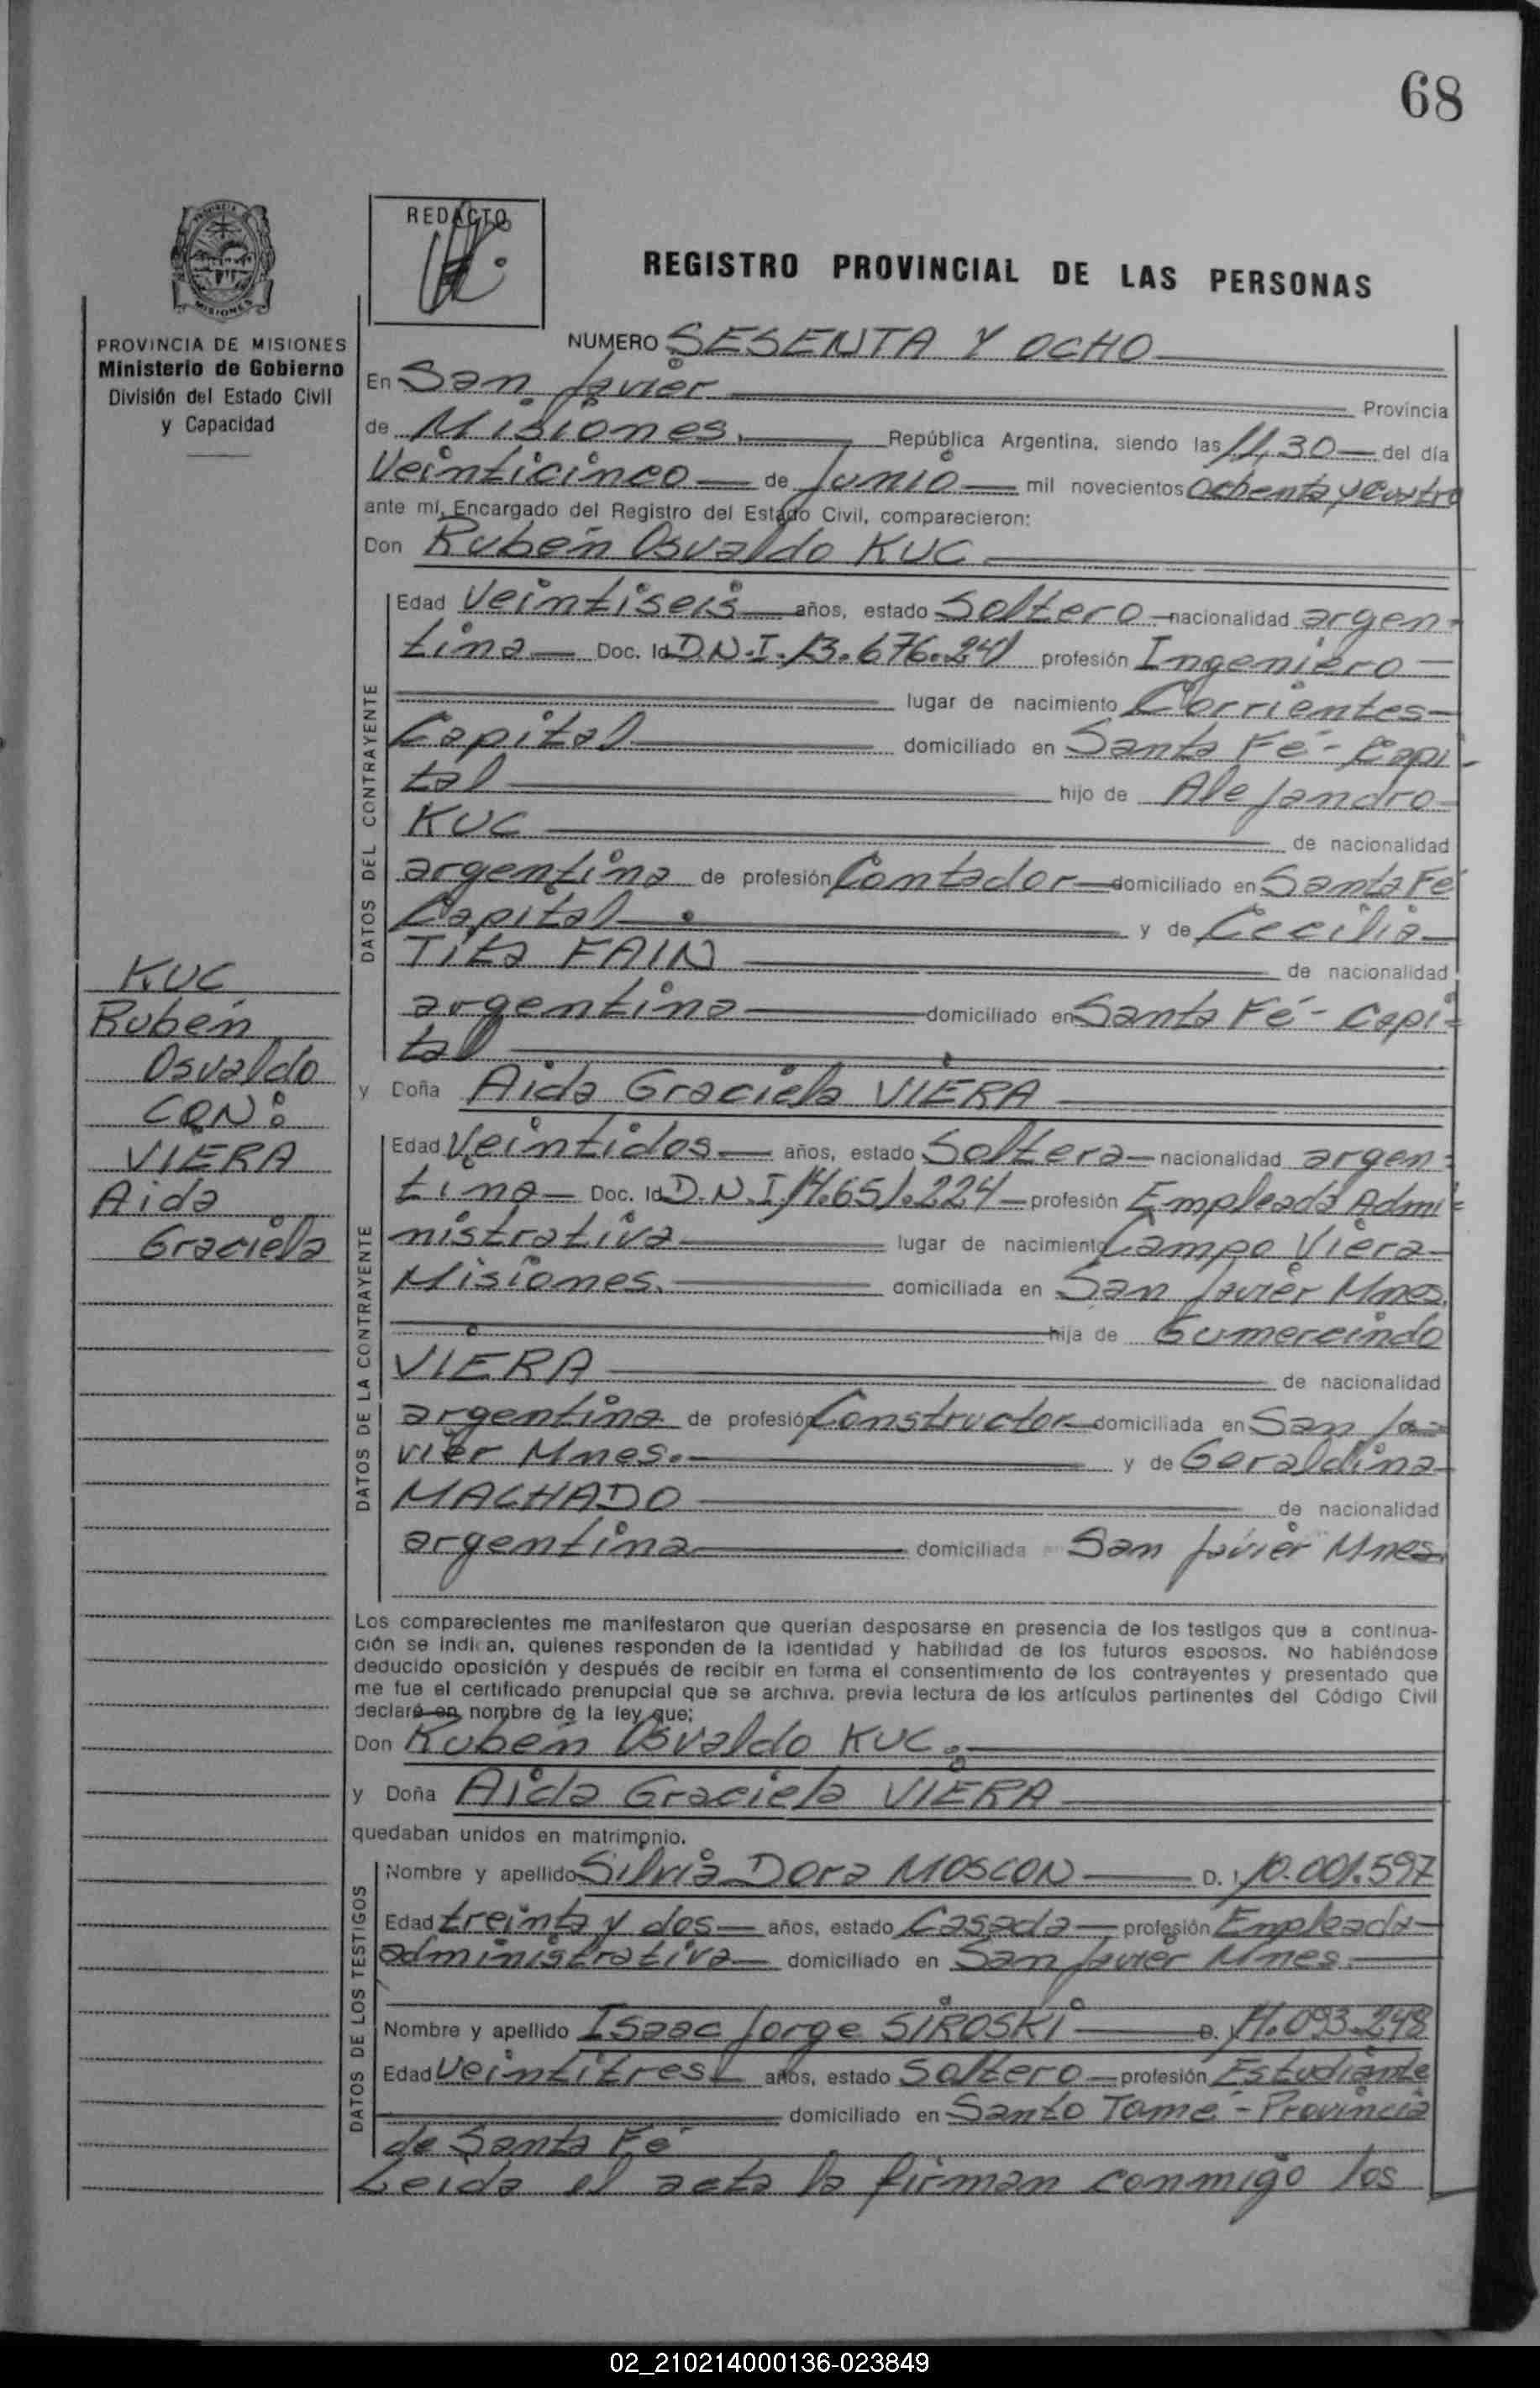 68
REDACTO
REGISTRO PROVINCIAL DE LAS PERSONAS
MISIONES
PROVINCIA DE MISIONES
Ministerio de Gobierno
División del Estado Civil
y Capacidad
NUMERO SESENTA Y OCHO
En San Javier Provincia
de Misiones. República Argentina, siendo las 11,30 del día
Veinticinco de Junio mil novecientos ochenta y cuatro
ante mí, Encargado del Registro del Estado Civil, comparecieron:
Don Rubén Osvaldo KUC
DATOS DEL CONTRAYENTE
Edad Veintiseis años, estado Soltero nacionalidad argen-
tina Doc. Id D.N.I. 13.676.241 profesión Ingeniero
lugar de nacimiento Corrientes
Capital domiciliado en Santa Fé - Capi-
tal hijo de Alejandro
KUC de nacionalidad
argentina de profesión Contador domiciliado en Santa Fé
Capital y de Cecilia
Tita FAIN de nacionalidad
argentina domiciliado en Santa Fé - Capi-
tal
y Doña Aida Graciela VIERA
KUC
Rubén
Osvaldo
CON:
VIERA
Aida
Graciela
DATOS DE LA CONTRAYENTE
Edad Veintidos años, estado Soltera nacionalidad argen-
tina Doc. Id D.N.I. 14.651.224 profesión Empleada Admi-
nistrativa lugar de nacimiento Campo Viera
Misiones. domiciliada en San Javier Mnes.
hija de Gumercindo
VIERA de nacionalidad
argentina de profesión Constructor domiciliada en San Ja-
vier Mnes. y de Geraldina
MACHADO de nacionalidad
argentina domiciliada San Javier Mnes.
Los comparecientes me manifestaron que querían desposarse en presencia de los testigos que a continua-
ción se indican, quienes responden de la identidad y habilidad de los futuros esposos. No habiéndose
deducido oposición y después de recibir en forma el consentimiento de los contrayentes y presentado que
me fue el certificado prenupcial que se archiva, previa lectura de los artículos pertinentes del Código Civil
declaré en nombre de la ley que:
Don Rubén Osvaldo KUC
y Doña Aida Graciela VIERA
quedaban unidos en matrimonio.
DATOS DE LOS TESTIGOS
Nombre y apellido Silvia Dora MOSCON D. I. 10.001.597
Edad treinta y dos años, estado Casada profesión Empleada
administrativa domiciliado en San Javier Mnes.
Nombre y apellido Isaac Jorge SIROSKI D. I. 14.093.248
Edad Veintitres años, estado Soltero profesión Estudiante
domiciliado en Santo Tomé - Provincia
de Santa Fé
Leida el acta la firman conmigo los
02_210214000136-023849